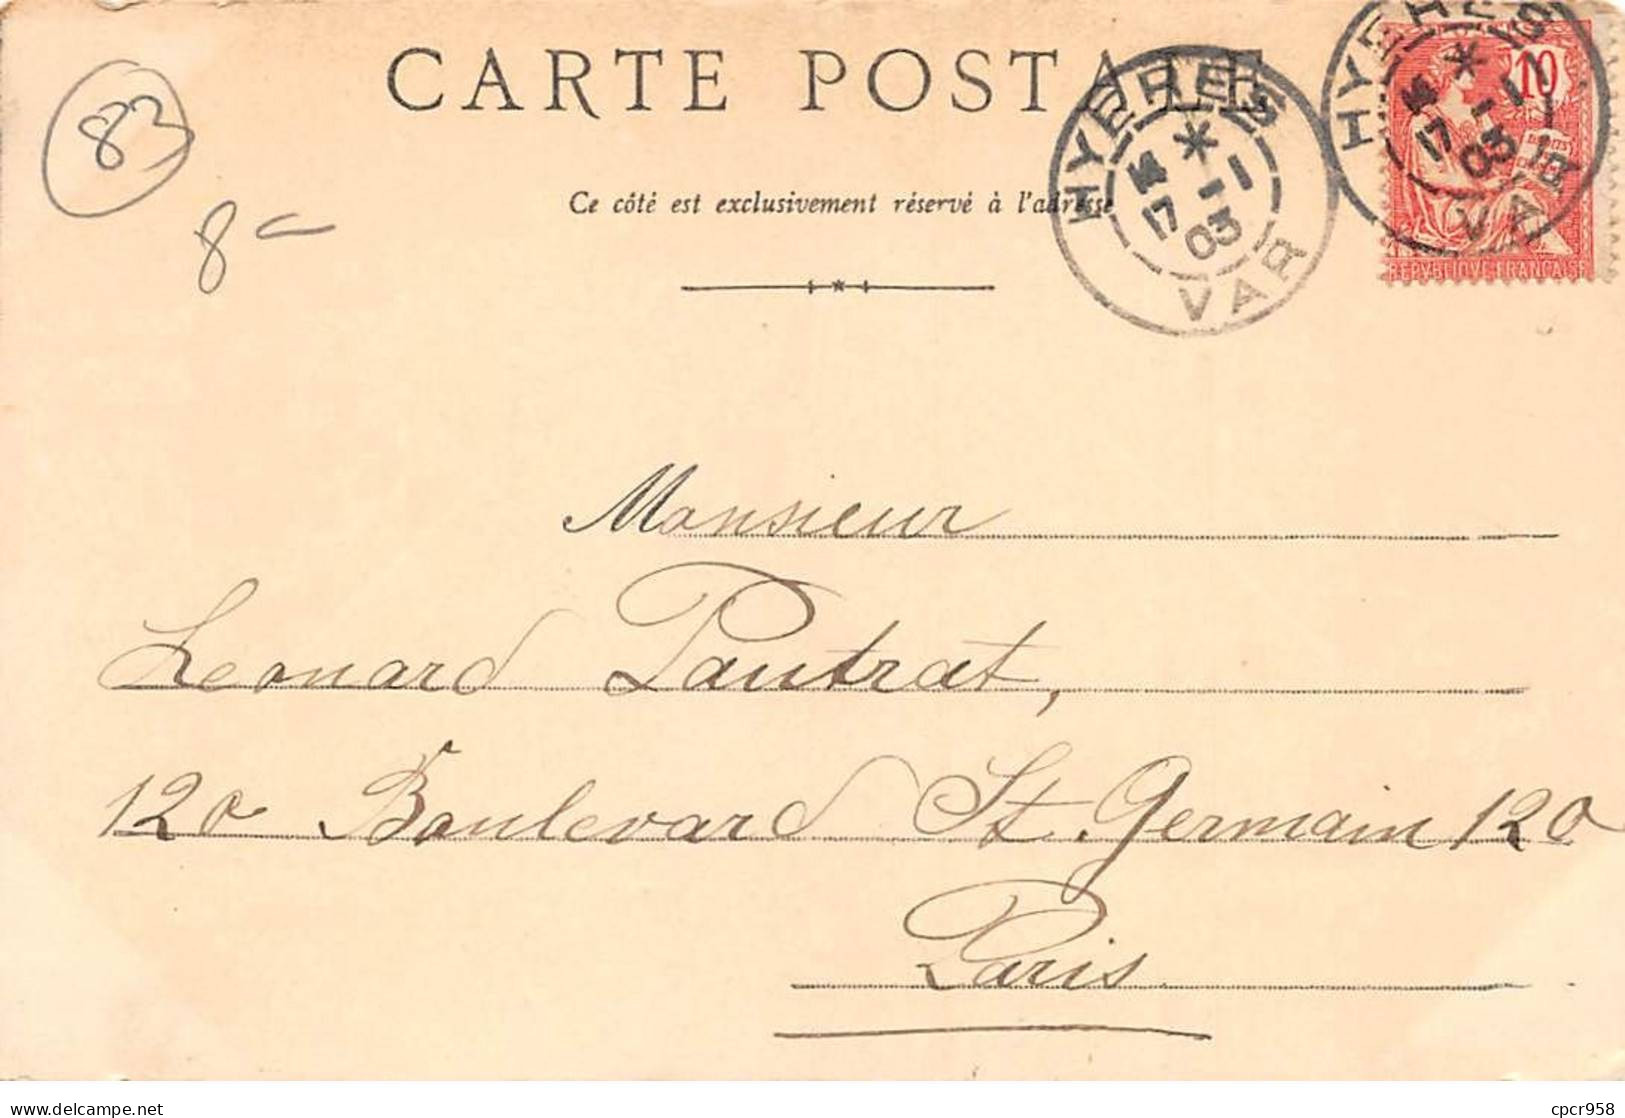 CARTE POSTALE
83
8-
Ce côté est exclusivement réservé à l'adresse
HYERES
17 -1
03
VAR
HYERES
17 -1
03
VAR
10
REPVBLIQVE FRANÇAISE
Monsieur
Leonard Pautrat,
120 Boulevard St. Germain 120
Paris
delcampe.net
cpcr958